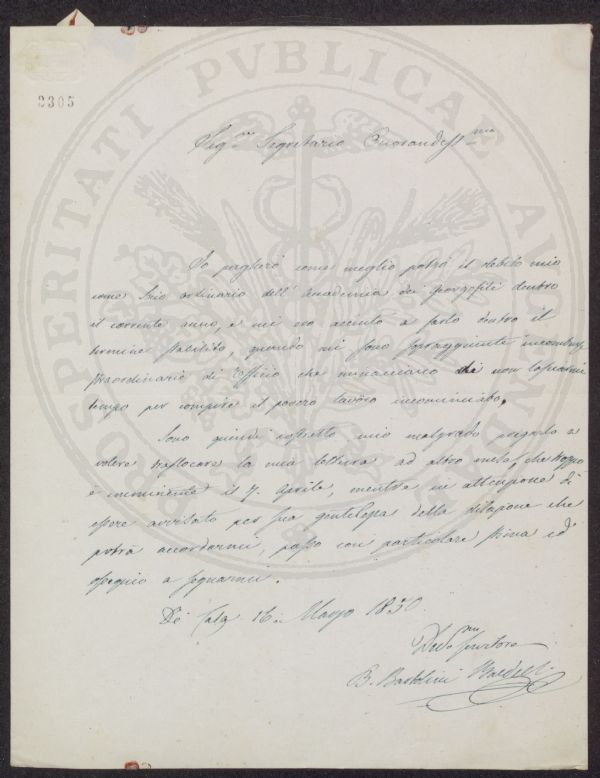 2305
PROSPERITATI PUBLICAE AUGENDAE
Sig.re Segretario Onorandss.mo
Io scioglierò come meglio potrò il debito mio
come Socio ordinario dell' Accademia dei Georgofili dentro
il corrente anno, e mi ero accinto a farlo dentro il
termine stabilito, quando mi sono sopraggiunte incombenze
straordinarie di Uffizio che minacciano di non lasciarmi
tempo per compire il povero lavoro incominciato.
Sono quindi costretto mio malgrado pregarla a
volere traslocare la mia lettura ad altro mese, che troppo
è imminente il 7. Aprile, mentre in attenzione di
essere avvisato per sua gentilezza della dilazione che
potrà accordarmi, passo con particolare stima ed
ossequio a segnarmi.
Di Casa 16. Marzo 1830.
Dev.mo Servitore
B. Bartolini Baldelli